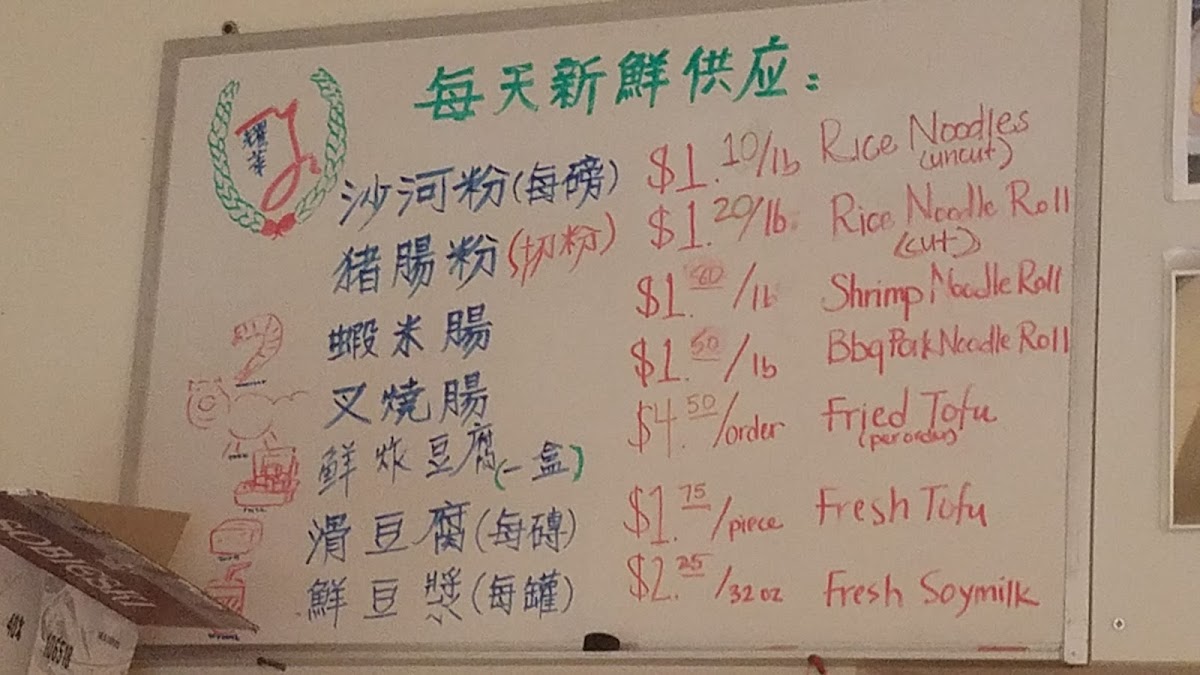 每天新鮮供应:
耀華
沙河粉(每磅) $1.10/lb Rice Noodles
(uncut)
猪腸粉(切粉) $1.20/lb. Rice Noodle Roll
(cut)
蝦米腸 $1. /lb Shrimp Noodle Roll
叉燒腸 $1.50/lb Bbq Pork Noodle Roll
鮮炸豆腐(一盒) $4.50/order Fried Tofu
(per order)
滑豆腐(每磚) $1.75/piece Fresh Tofu
鮮豆漿(每罐) $2.25/32oz Fresh Soymilk
SOBIESKI
40%
106518